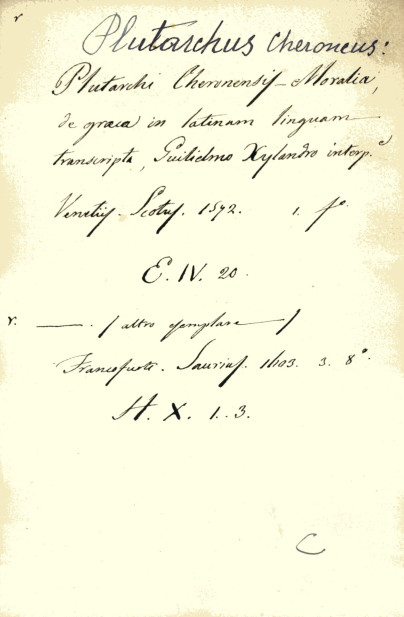 r
Plutarchus Cheroneus:
Plutarchi Cheronensis Moralia,
de graeca in latinam linguam
transcripta, Guilielmo Xylandro interp.e
Venetijs. Scotus. 1572. 1. fo.
E. IV. 20.
r. —— . / altro esemplare —— /
Francofurti. Saurius. 1603. 3. 8°.
H. X. 1..3.
C